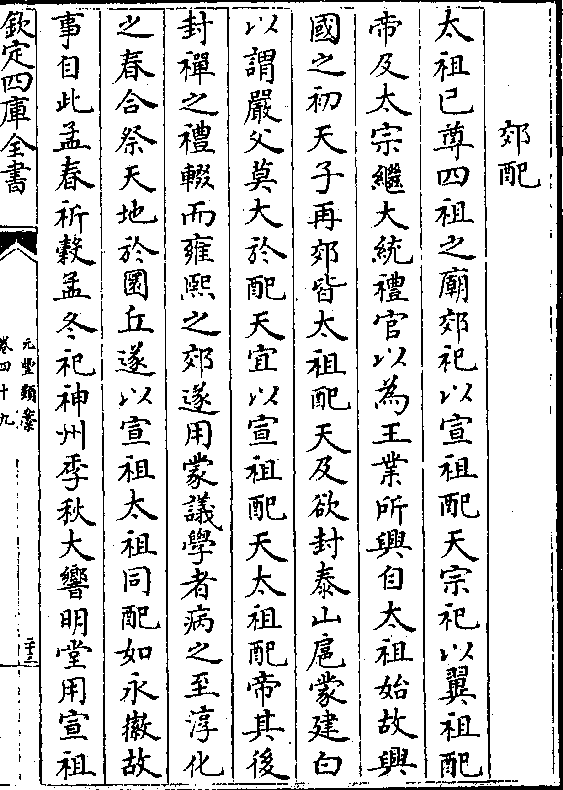 郊配
太祖已尊四祖之廟郊祀以宣祖配天宗祀以翼祖配
帝及太宗繼大統禮官以為王業所興自太祖始故興
國之初天子再郊皆太祖配天及欲封泰山扈蒙建白
以謂嚴父莫大於配天宜以宣祖配天太祖配帝其後
封禪之禮輟而雍熙之郊遂用蒙議學者病之至淳化
之春合祭天地於圜丘遂以宣祖太祖同配如永徽故
事自此孟春祈穀孟冬祀神州季秋大饗明堂用宣祖
欽定四庫全書
元豐類藁
卷四十九
二十三